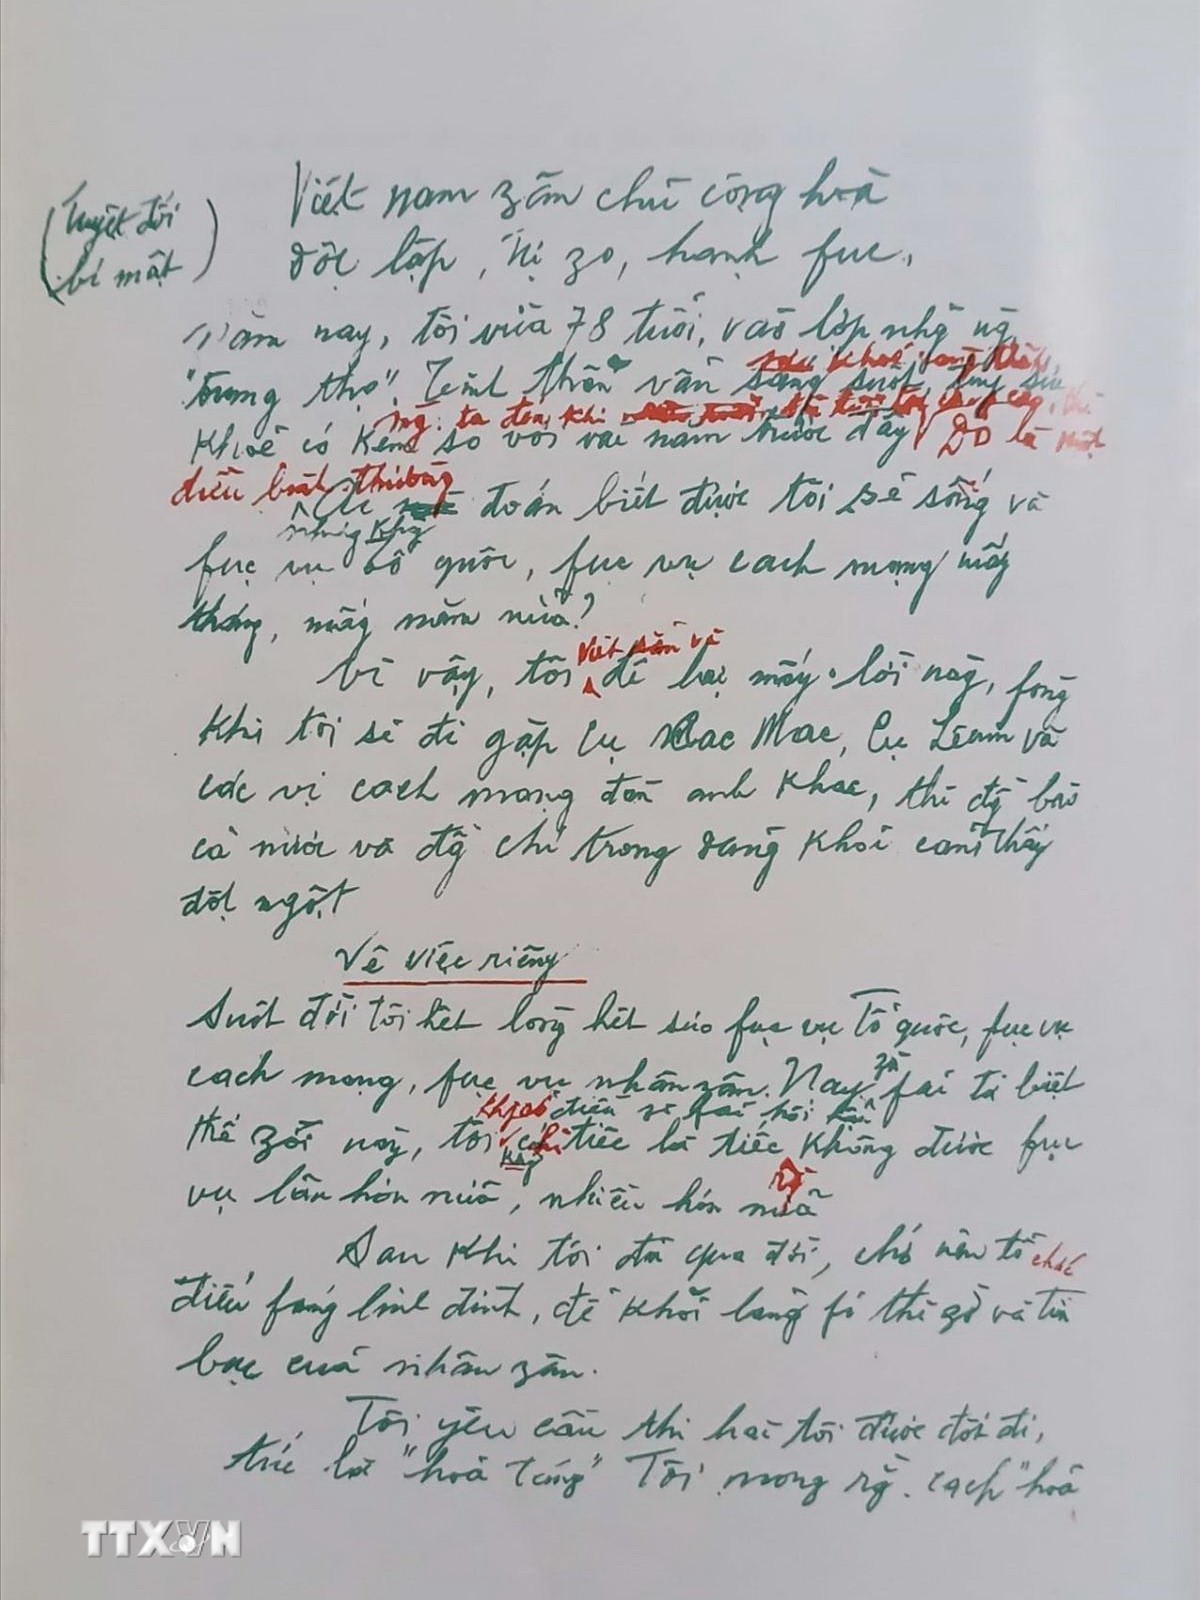 (tuyệt đối
bí mật)
Việt nam zân chủ cộng hoà
độc lập, tự zo, hạnh fúc,
Năm nay, tôi vừa 78 tuổi, vào lớp nhữ ng
"trung thọ". Tinh thần vẫn sáng suốt, tuy sức
khoẻ có kém so với vài năm trước đây
ng: ta đến khi
Đó là một
điều bình thường
Ai đoán biết được tôi sẽ sống và
nhưng không
fục vụ tổ quốc, fục vụ cách mạng mấy
tháng, mấy năm nữa?
Vì vậy, tôi viết sẵn và để lại mấy lời này, fòng
khi tôi sẽ đi gặp cụ Các Mác, cụ Lênin và
các vị cách mạng đàn anh khác, thì đồng bào
cả nước và đồng chí trong đảng khỏi cảm thấy
đột ngột
Về việc riêng
Suốt đời tôi hết lòng hết sức fục vụ Tổ quốc, fục vụ
cách mạng, fục vụ nhân zân. Nay zù fải từ biệt
thế zới này, tôi không có điều gì fải hối hận
chỉ tiếc là tiếc không được fục
vụ lâu hơn nữa, nhiều hơn nữa
Sau khi tôi đã qua đời, chớ nên tổ chức
điếu fúng linh đình, để khỏi lãng fí thì zờ và tiền
bạc của nhân zân.
Tôi yêu cầu thi hài tôi được đốt đi,
tức là "hoả táng" Tôi mong rằng cách "hoả
TTXVN